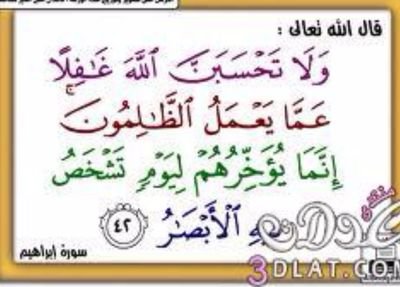 قال الله تعالى :
وَلَا تَحْسَبَنَّ ٱللَّهَ غَٰفِلًا
عَمَّا يَعْمَلُ ٱلظَّٰلِمُونَ ۚ
إِنَّمَا يُؤَخِّرُهُمْ لِيَوْمٍ تَشْخَصُ
فِيهِ ٱلْأَبْصَٰرُ ٤٢
سورة إبراهيم
منتدى
3DLAT.COM